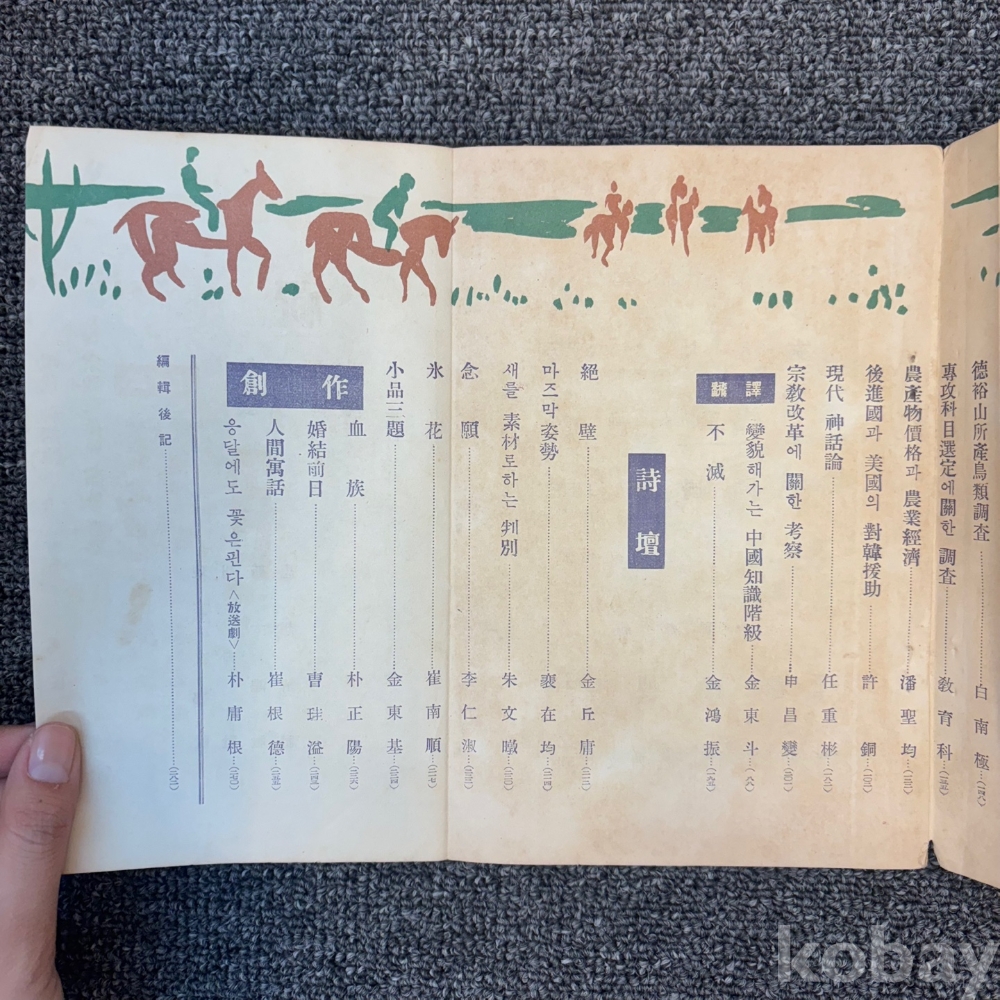 德裕山所產鳥類調査 白南極
專攻科目選定에 關한 調査 敎育科
農產物價格과 農業經濟 潘聖均
後進國과 美國의 對韓援助 許錮
現代 神話論 任重彬
宗敎改革에 關한 考察 申昌燮
飜譯
變貌해가는 中國知識階級 金東斗
不滅 金鴻振
詩壇
絕壁 金丘庸
마즈막姿勢 裵在均
새를 素材로하는 判別 朱文暾
念願 李仁淑
氷花 崔南順
小品三題 金東基
創作
血族 朴正陽
婚結前日 曺珪溢
人間寓話 崔根德
응달에도 꽃은핀다〈放送劇〉 朴庸根
編輯後記
kobay